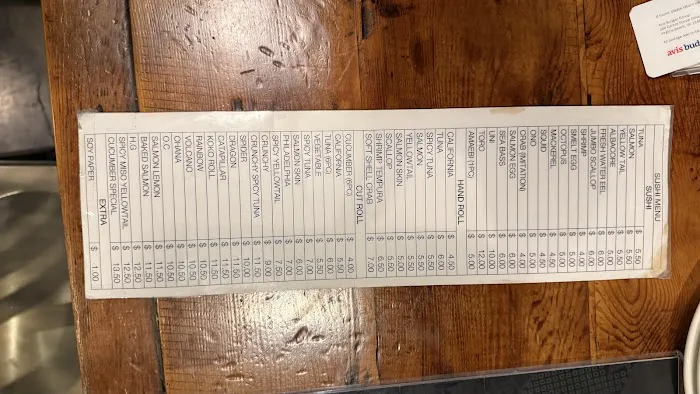 SUSHI MENU
SUSHI
TUNA $ 5.50
SALMON $ 5.50
YELLOW TAIL $ 5.50
ALBACORE $ 5.00
FRESH WATER EEL $ 6.00
JUMBO SCALLOP $ 6.00
SHRIMP $ 4.50
SMELT EGG $ 5.00
OCTOPUS $ 5.00
MACKEREL $ 4.50
SQUID $ 4.50
ONO $ 5.00
CRAB (IMITATION) $ 4.00
SALMON EGG $ 6.00
SEA BASS $ 5.00
UNI $ 10.00
TORO $ 12.00
AMAEBI (1PC) $ 5.00
HAND ROLL
CALIFORNIA $ 4.50
TUNA $ 6.00
SPICY TUNA $ 5.50
SALMON $ 5.50
YELLOWTAIL $ 5.50
SALMON SKIN $ 5.00
SCALLOP $ 5.50
SHRIMP TEMPURA $ 6.50
SOFT SHELL CRAB $ 7.00
CUT ROLL
CUCUMBER (6PC) $ 4.00
CALIFORNIA $ 5.50
TUNA (6PC) $ 6.00
VEGETABLE $ 5.50
SPICY TUNA $ 7.50
SALMON SKIN $ 6.00
PHILADELPHIA $ 7.00
SPICY YELLOWTAIL $ 7.50
CRUNCHY $ 9.00
CRUNCHY SPICY TUNA $ 11.50
SPIDER $ 10.00
DRAGON $ 11.50
CATERPILLAR $ 11.50
KIHO ROLL $ 11.50
RAINBOW $ 10.50
VOLCANO $ 10.50
OHANA $ 10.50
O.C $ 10.50
SALMON LEMON $ 11.50
BAKED SALMON $ 11.50
H.G $ 12.50
SPICY MISO YELLOWTAIL $ 12.50
CUCUMBER SPECIAL $ 13.50
EXTRA
SOY PAPER $ 1.00
avis bud